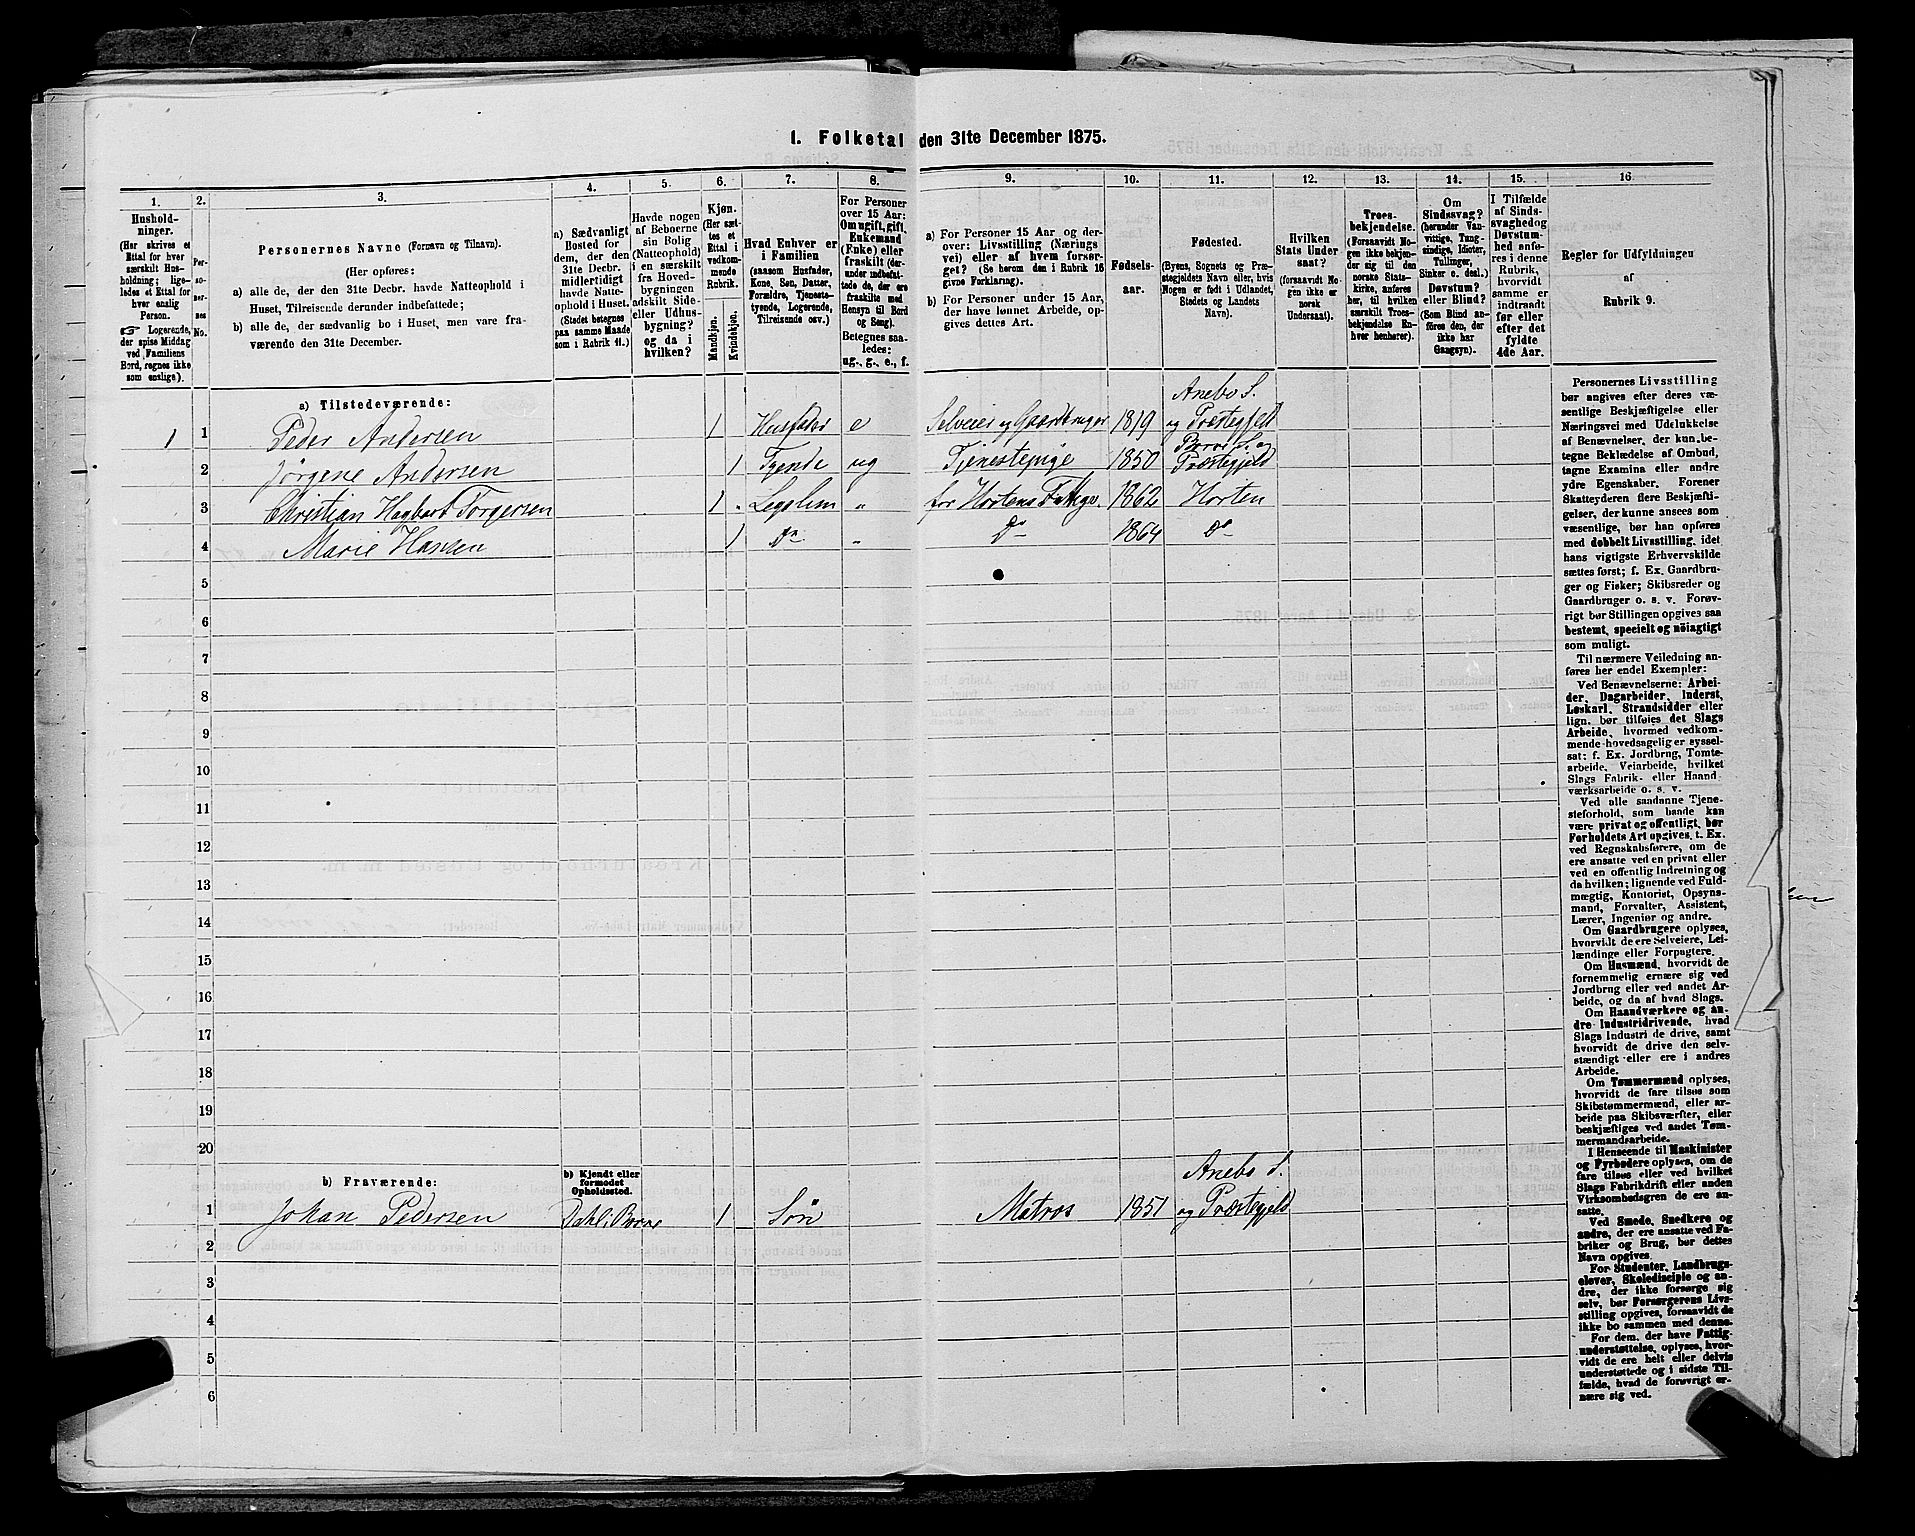 1. Folketal den 31te December 1875.
1.
Hushold-
ninger.
(Her skrives et
Ettal for hver
særskilt Hus-
holdning; lige-
ledes et Ettal for
hver enslig
Person.
☞ Logerende,
der spise Middag
ved Familiens
Bord, regnes ikke
som enslige).
2.
Per-
so-
ner-
nes
No.
3.
Personernes Navne (Fornavn og Tilnavn).
(Her opføres:
a) alle de, der den 31te Decbr. havde Natteophold i
Huset, Tilreisende derunder indbefattede;
b) alle de, der sædvanlig bo i Huset, men vare fra-
værende den 31te December.
4.
a) Sædvanligt
Bosted for
dem, der den
31te Decbr.
midlertidigt
havde Natte-
ophold i Huset.
(Stedet betegnes
paa samme Maade
som i Rubrik 11.)
5.
Havde nogen
af Beboerne
sin Bolig
(Natteophold)
i en særskilt
fra Hoved-
bygningen
adskilt Side-
eller Udhus-
bygning?
og da i
hvilken?
6.
Kjøn.
(Her sæt-
tes et
Ettal i
vedkom-
mende
Rubrik.
Mandkjøn.
Kvindekjøn.
7.
Hvad Enhver er
i Familien
(saasom Husfader,
Kone, Søn, Datter,
Forældre, Tjeneste-
tyende, Logerende,
Tilreisende osv.)
8.
For Personer
over 15 Aar:
Om ugift, gift,
Enkemand
(Enke) eller
fraskilt (der-
under indbefat-
tede de, der ere
fraskilte med
Hensyn til Bord
og Seng).
Betegnes saa-
ledes:
ug., g., e., f.
9.
a) For Personer 15 Aar og der-
over: Livsstilling (Nærings
vei) eller af hvem forsør-
get? (Se herom den i Rubrik 16
givne Forklaring).
b) For Personer under 15 Aar,
der have lønnet Arbeide, op-
gives dettes Art.
10.
Fødsels-
aar.
11.
Fødested.
(Byens, Sognets og Præ-
stegjeldets Navn eller, hvis
Nogen er født i Udlandet,
Stedets og Landets
Navn).
12.
Hvilken
Stats Under
saat?
(forsaavidt No-
gen ikke er
norsk
Undersaat).
13.
Troes-
bekjendelse.
(Forsaavidt No-
gen ikke bekjen-
der sig til den
norske Stats-
kirke, anføres
her, til hvilken
særskilt Troes-
bekjendelse En-
hver henhører).
14.
Om
Sindssvag?
(herunder Van-
vittige, Tung-
sindige, Idioter,
Tullinger,
Sinker o. desl.)
Døvstum?
eller Blind?
(Som Blind an-
føres den, der
ikke har
Gangsyn).
15.
I Tilfælde
af Sinds-
svaghed og
Døvstum-
hed anfø-
res i denne
Rubrik,
hvorvidt
samme er
indtraadt
før eller
efter det
fyldte
4de Aar.
16.
Regler for Udfyldningen
af
Rubrik 9.
a) Tilstedeværende:
Anebo S.
1 1 Peder Andersen 1 Husfader e Selveier og Gaardbruger 1819 og Præstegjeld
Borre S. og
2 Jørgene Andersen 1 Tyende ug Tjenestepige 1850 Præstegjeld
3 Christian Hagbart Torgersen 1 " Legslem " for Hortens Fattigv. 1862 Horten
4 Marie Hansen 1 Do " Do 1864 Do
5
6
7
8
9
10
11
12
13
14
15
16
17
18
19
20
b) Fraværende:
b) Kjendt eller
formodet
Opholdssted.
Anebo S.
1 Johan Pedersen Dahl i Borre 1 Søn Matros 1851 og Præstegjeld
2
3
4
5
6
Personernes Livsstilling
bør angives efter deres væ-
sentlige Beskjæftigelse eller
Næringsvei med Udelukkelse
af Benævnelser, der kun be-
tegne Beklædelse af Ombud,
tagne Examina eller andre
ydre Egenskaber. Forener
Skatteyderen flere Beskjæfti-
gelser, der kunne ansees som
væsentlige, bør han opføres
med dobbelt Livsstilling, idet
hans vigtigste Erhvervskilde
sættes først; f. Ex. Gaardbru-
ger og Fisker; Skibsreder og
Gaardbruger o. s. v. Forøv-
rigt bør Stillingen opgives saa
bestemt, specielt og nöiagtigt
som muligt.
Til nærmere Veiledning an-
føres her endel Exempler:
Ved Benævnelserne: Arbei-
der, Dagarbeider, Inderst,
Løskarl, Strandsidder eller
lign. bør tilføies det Slags
Arbeide, hvormed vedkom-
mende hovedsagelig er syssel-
sat; f. Ex. Jordbrug, Tomte-
arbeide, Veiarbeide, hvilket
Slags Fabrik- eller Haand
værksarbeide o. s. v.
Ved alle saadanne Tjene-
steforhold, som baade kan
være privat og offentligt, bør
Forholdets Art opgives, t. Ex.
ved Regnskabsførere, om de
ere ansatte ved en privat eller
ved en offentlig Indretning og
da hvilken; lignende ved Fuld-
mægtig, Kontorist, Opsyns-
mand, Forvalter, Assistent,
Lærer, Ingeniør og andre.
Om Gaardbrugere oplyses,
hvorvidt de ere Selveiere, Lei-
lændinge eller Forpagtere.
Om Husmænd, hvorvidt de
fornemmelig ernære sig ved
Jordbrug eller ved andet Ar-
beide, og da af hvad Slags.
Om Haandværkere og an-
dre Industridrivende, hvad
Slags Industri de drive, samt
hvorvidt de drive den selv-
stændigt eller ere i andres
Arbeide.
Om Tømmermænd oplyses,
hvorvidt de fare tilsøs som
Skibstømmermænd, eller ar-
beide paa Skibsværfter, eller
beskjæftiges ved andet Tøm-
mermandsarbeide.
I Henseende til Maskinister
og Fyrbødere oplyses, om de
fare tilsøs eller ved hvilket
Slags Fabrikdrift eller anden
Virksomhedsgren de ere an-
satte.
Ved Smede, Snedkere og
andre, der ere ansatte ved Fa-
briker og Brug, bør dettes
Navn opgives.
For Studenter, Landbrugs-
elever, Skoledisciple og an-
dre, der ikke forsørge sig
selv, bør Forsørgerens Livs-
stilling opgives, forsaavidt de
ikke bo sammen med denne.
For dem, der have Fattig-
understøttelse, oplyses, hvor-
vidt de ere helt eller delvis
understøttede og i sidste Til-
fælde, hvad de forøvrigt er-
nære sig ved.